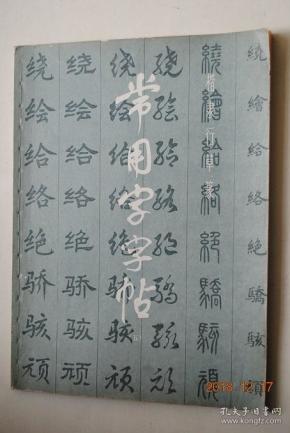 常用字字帖
楷隶行草篆
绕绘给络绝骄骇顽
绕绘给络绝骄骇顽
绕绘给络绝骄骇顽
绕绘给络绝骄骇顽
繞繪給絡絕驕駭頑
繞繪給絡絕驕駭頑
2018 12 17
孔夫子旧书网